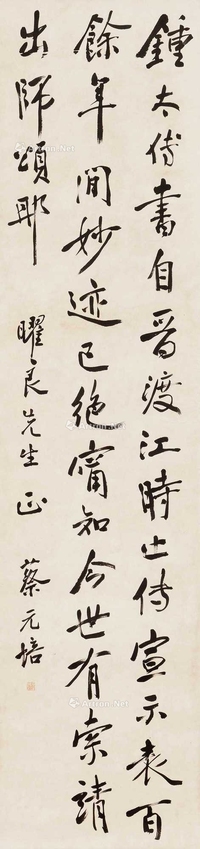 鍾太傅書自晉渡江時止傳宣示表百
餘年間妙迹已絕甯知今世有索靖
出師頌耶
曜良先生正
蔡元培